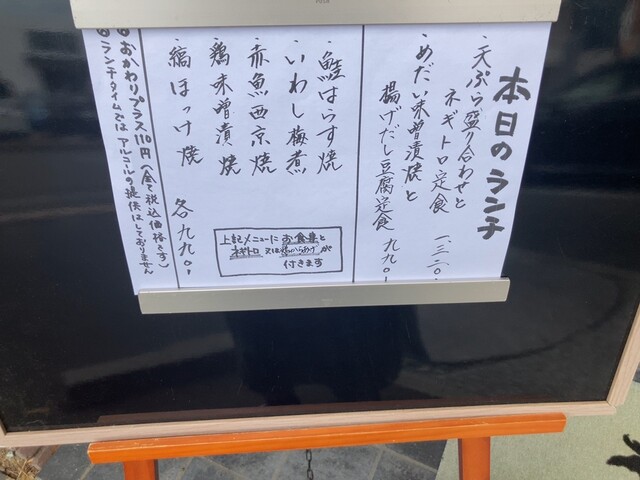 本日のランチ
・天ぷら盛り合わせと
ネギトロ定食 一、三二〇.
・めだい味噌漬焼と
揚げだし豆腐定食 九九〇.
・鮭はらす焼
・いわし梅煮
・赤魚西京焼
・鶏味噌漬焼
・縞ほっけ焼 各九九〇.
上記メニューにお食事と
ネギトロ又は
付きます
おかわりプラス110円(全て税込価格です)
ランチタイムではアルコールの提供はしておりません